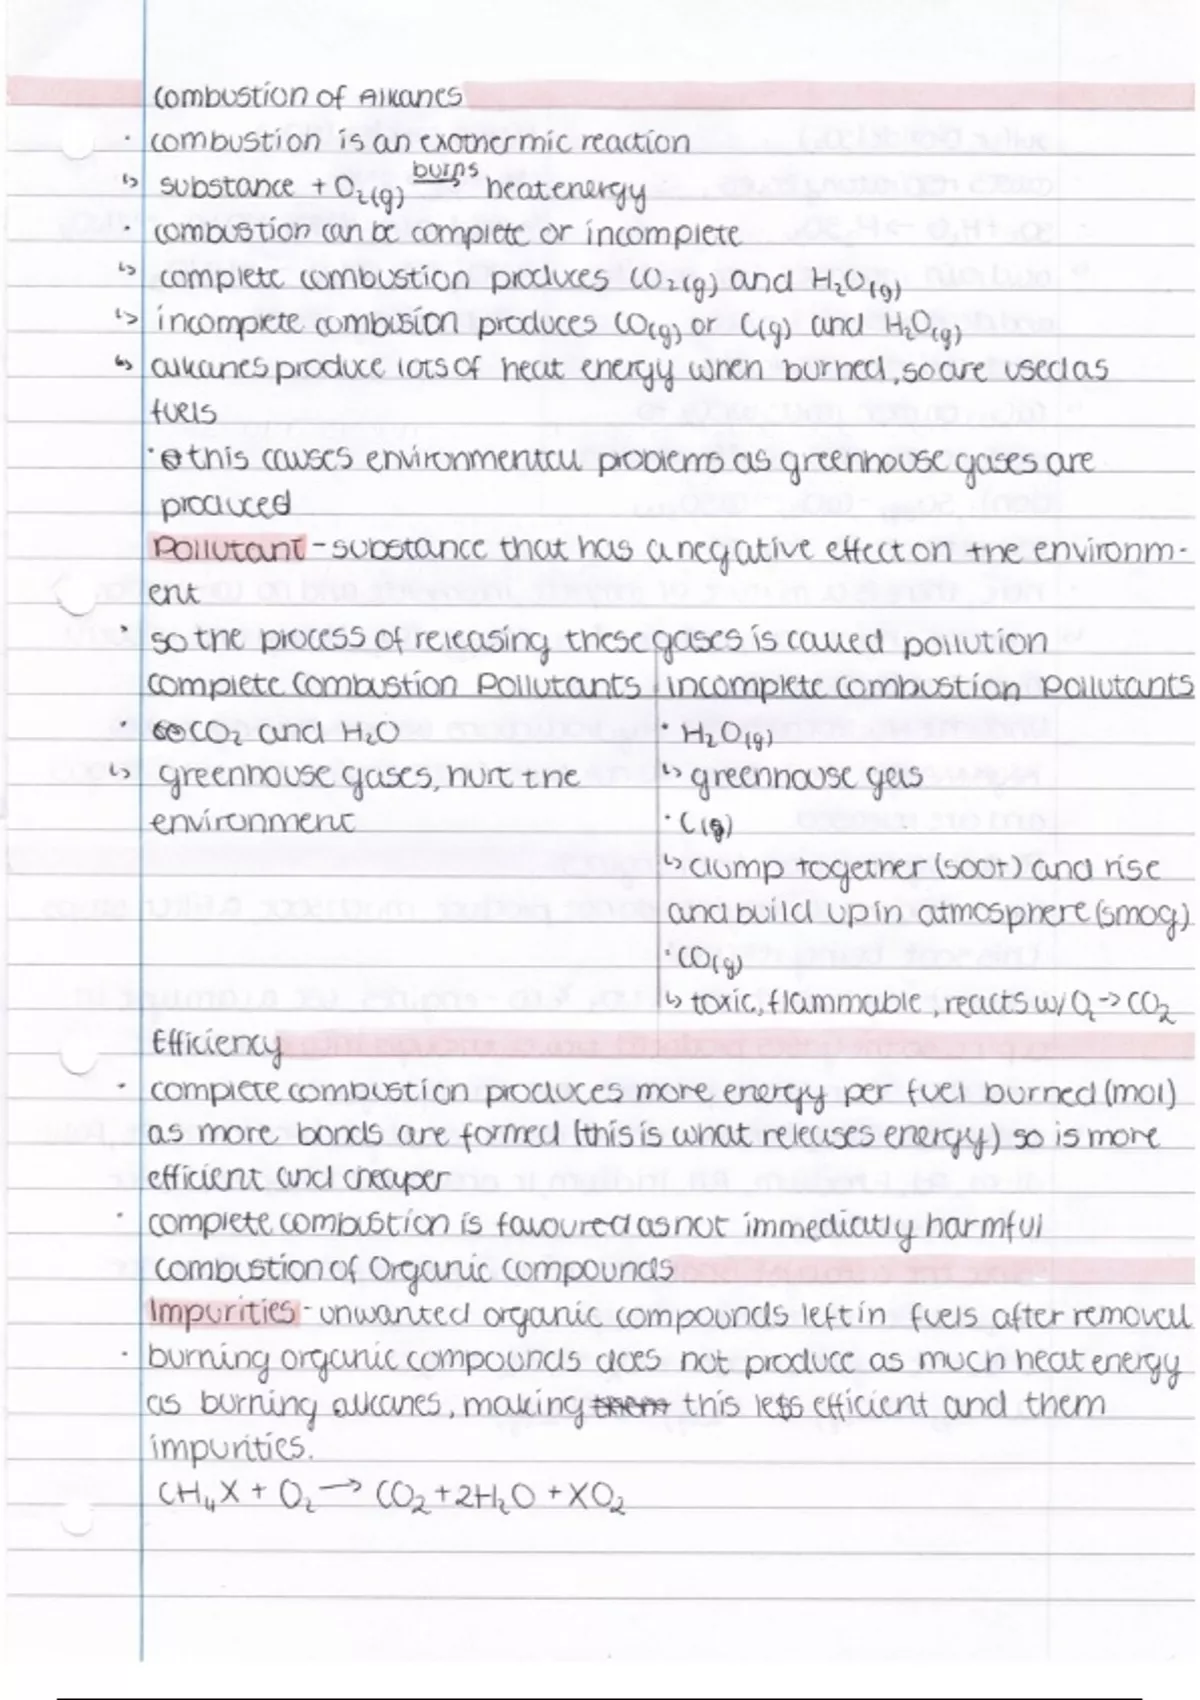 Combustion of Alkanes
· combustion is an exothermic reaction
↳ substance + O₂(g) burns→ heat energy
· combustion can be complete or incomplete
↳ complete combustion produces CO₂(g) and H₂O(g)
↳ incomplete combusion produces CO(g) or C(g) and H₂O(g)
↳ alkanes produce lots of heat energy when burned, so are used as
fuels
· this causes environmental problems as greenhouse gases are
produced
Pollutant - substance that has a negative effect on the environm-
ent
· so the process of releasing these gases is called pollution
Complete Combustion Pollutants
· CO₂ and H₂O
↳ greenhouse gases, hurt the
environment
incomplete combustion pollutants
· H₂O(g)
↳ greenhouse gas
· C(g)
↳ clump together (soot) and rise
and build up in atmosphere (smog)
· CO(g)
↳ toxic, flammable, reacts w/ O₂ -> CO₂
Efficiency
· complete combustion produces more energy per fuel burned (mol)
as more bonds are formed (this is what releases energy) so is more
efficient and cheaper
· complete combustion is favoured as not immediatly harmful
Combustion of Organic compounds
Impurities - unwanted organic compounds left in fuels after removal
· burning organic compounds does not produce as much heat energy
as burning alkanes, making them this less efficient and them
impurities.
CH₄X + O₂ → CO₂ + 2H₂O + XO₂